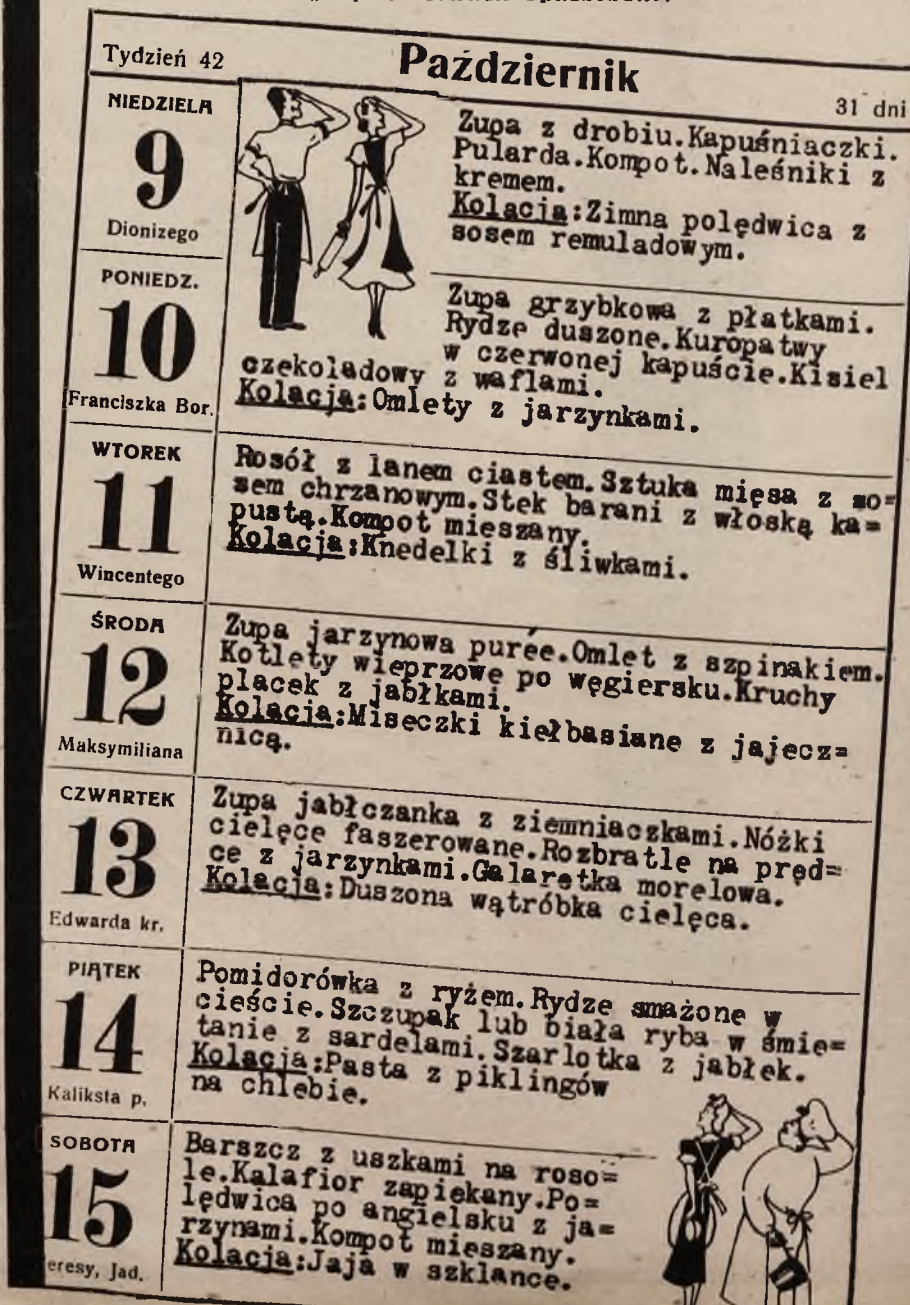 Tydzień 42
Październik
31 dni
NIEDZIELA
9
Dionizego
Zupa z drobiu.Kapuśniaczki.
Pularda.Kompot.Naleśniki z
kremem.
Kolacja:Zimna polędwica z
sosem remuladowym.
PONIEDZ.
10
Franciszka Bor.
Zupa grzybkowa z płatkami.
Rydze duszone.Kuropatwy
w czerwonej kapuście.Kisiel
czekoladowy z waflami.
Kolacja:Omlety z jarzynkami.
WTOREK
11
Wincentego
Rosół z lanem ciastem.Sztuka mięsa z so=
sem chrzanowym.Stek barani z włoską ka=
pustą.Kompot mieszany.
Kolacja:Knedelki z śliwkami.
ŚRODA
12
Maksymiliana
Zupa jarzynowa purée.Omlet z szpinakiem.
Kotlety wieprzowe po węgiersku.Kruchy
placek z jabłkami.
Kolacja:Miseczki kiełbasiane z jajecz=
nicą.
CZWARTEK
13
Edwarda kr.
Zupa jabłczanka z ziemniaczkami.Nóżki
cielęce faszerowane.Rozbratle na pręd=
ce z jarzynkami.Galaretka morelowa.
Kolacja:Duszona wątróbka cielęca.
PIĄTEK
14
Kaliksta p.
Pomidorówka z ryżem.Rydze smażone w
cieście.Szczupak lub biała ryba w śmie=
tanie z sardelami.Szarlotka z jabłek.
Kolacja:Pasta z piklingów
na chlebie.
SOBOTA
15
eresy, Jad.
Barszcz z uszkami na roso=
le.Kalafior zapiekany.Po=
lędwica po angielsku z ja=
rzynami.Kompot mieszany.
Kolacja:Jaja w szklance.